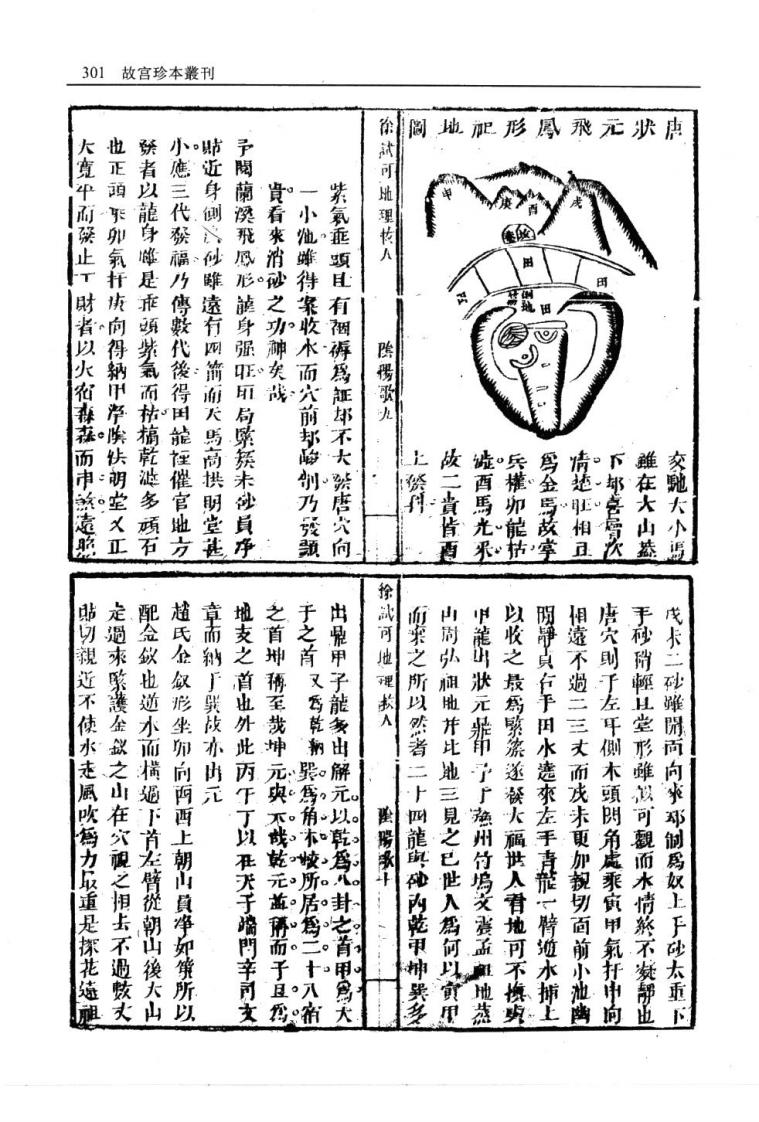 301 故宮珍本叢刊
唐狀元飛鳳形祀地圖
辛
庚
酉
戌
田
田
田
交馳大小馬
雖在大山蓋
下却喜層次
清楚旺相且
為金馬故掌
兵權卯龍枯
酉馬光彩
故二貴皆酉
上發科
徐試可地理 人
陰陽歌九
紫氣垂頭且有 為証却不大發唐穴向
一小池雖得案收水而穴前却 削乃發顯
貴看來消砂之功神矣哉
予閱蘭溪飛鳳形龍身强旺 局緊 未砂員淨
貼近身側 砂雖遠有四 而天馬高拱明堂甚
小應三代發福乃傳數代後得田龍 催官地方
發者以龍身雖是垂頭紫氣而枯槁乾澁多頑石
也正頭 卯氣扦庚向得納甲淨陰 明堂又正
大寬平而發止 財者以火宿森森而申 遠照
戌未二砂雖開面向來却制為奴上手砂太重下
手砂稍輕且堂形雖 可觀而水情終不凝靜也
唐穴則于左耳側木頭開角處乘寅甲氣扦申向
相遠不過二三丈而戌未更加親切面前小池幽
閒靜貞右手田水遶來左手青龍一臂逆水插上
以收之最為緊 遂發大福世人看地可不 與
甲龍出狀元 甲子 于 州竹塢文震孟祖地 
山周弘祖地并比地三見之已世人為何以寅甲
而棄之所以然者二十四龍與砂內乾甲坤巽多
徐試可地理 人
陰陽歌十
出 甲子龍多出解元以乾為八卦之首甲為天
干之首又為乾 巽為角木蛟所居為二十八宿
之首坤稱至哉坤元與大哉乾元並稱而子且為
地支之首也外此丙午丁以在天子端門辛司文
章而納于巽故亦出元
趙氏金釵形坐卯向酉酉上朝山員淨如 所以
配金釵也逆水而橫過下首左臂從朝山後大山
走過來緊護金釵之山在穴視之相去不過數丈
貼切親近不使水走風吹為力最重是探花遠祖